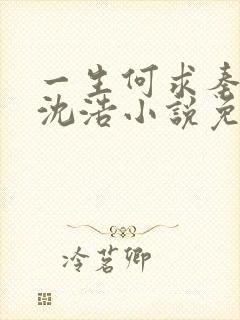 一生何求秦
沈浩小說免
冷茗卿